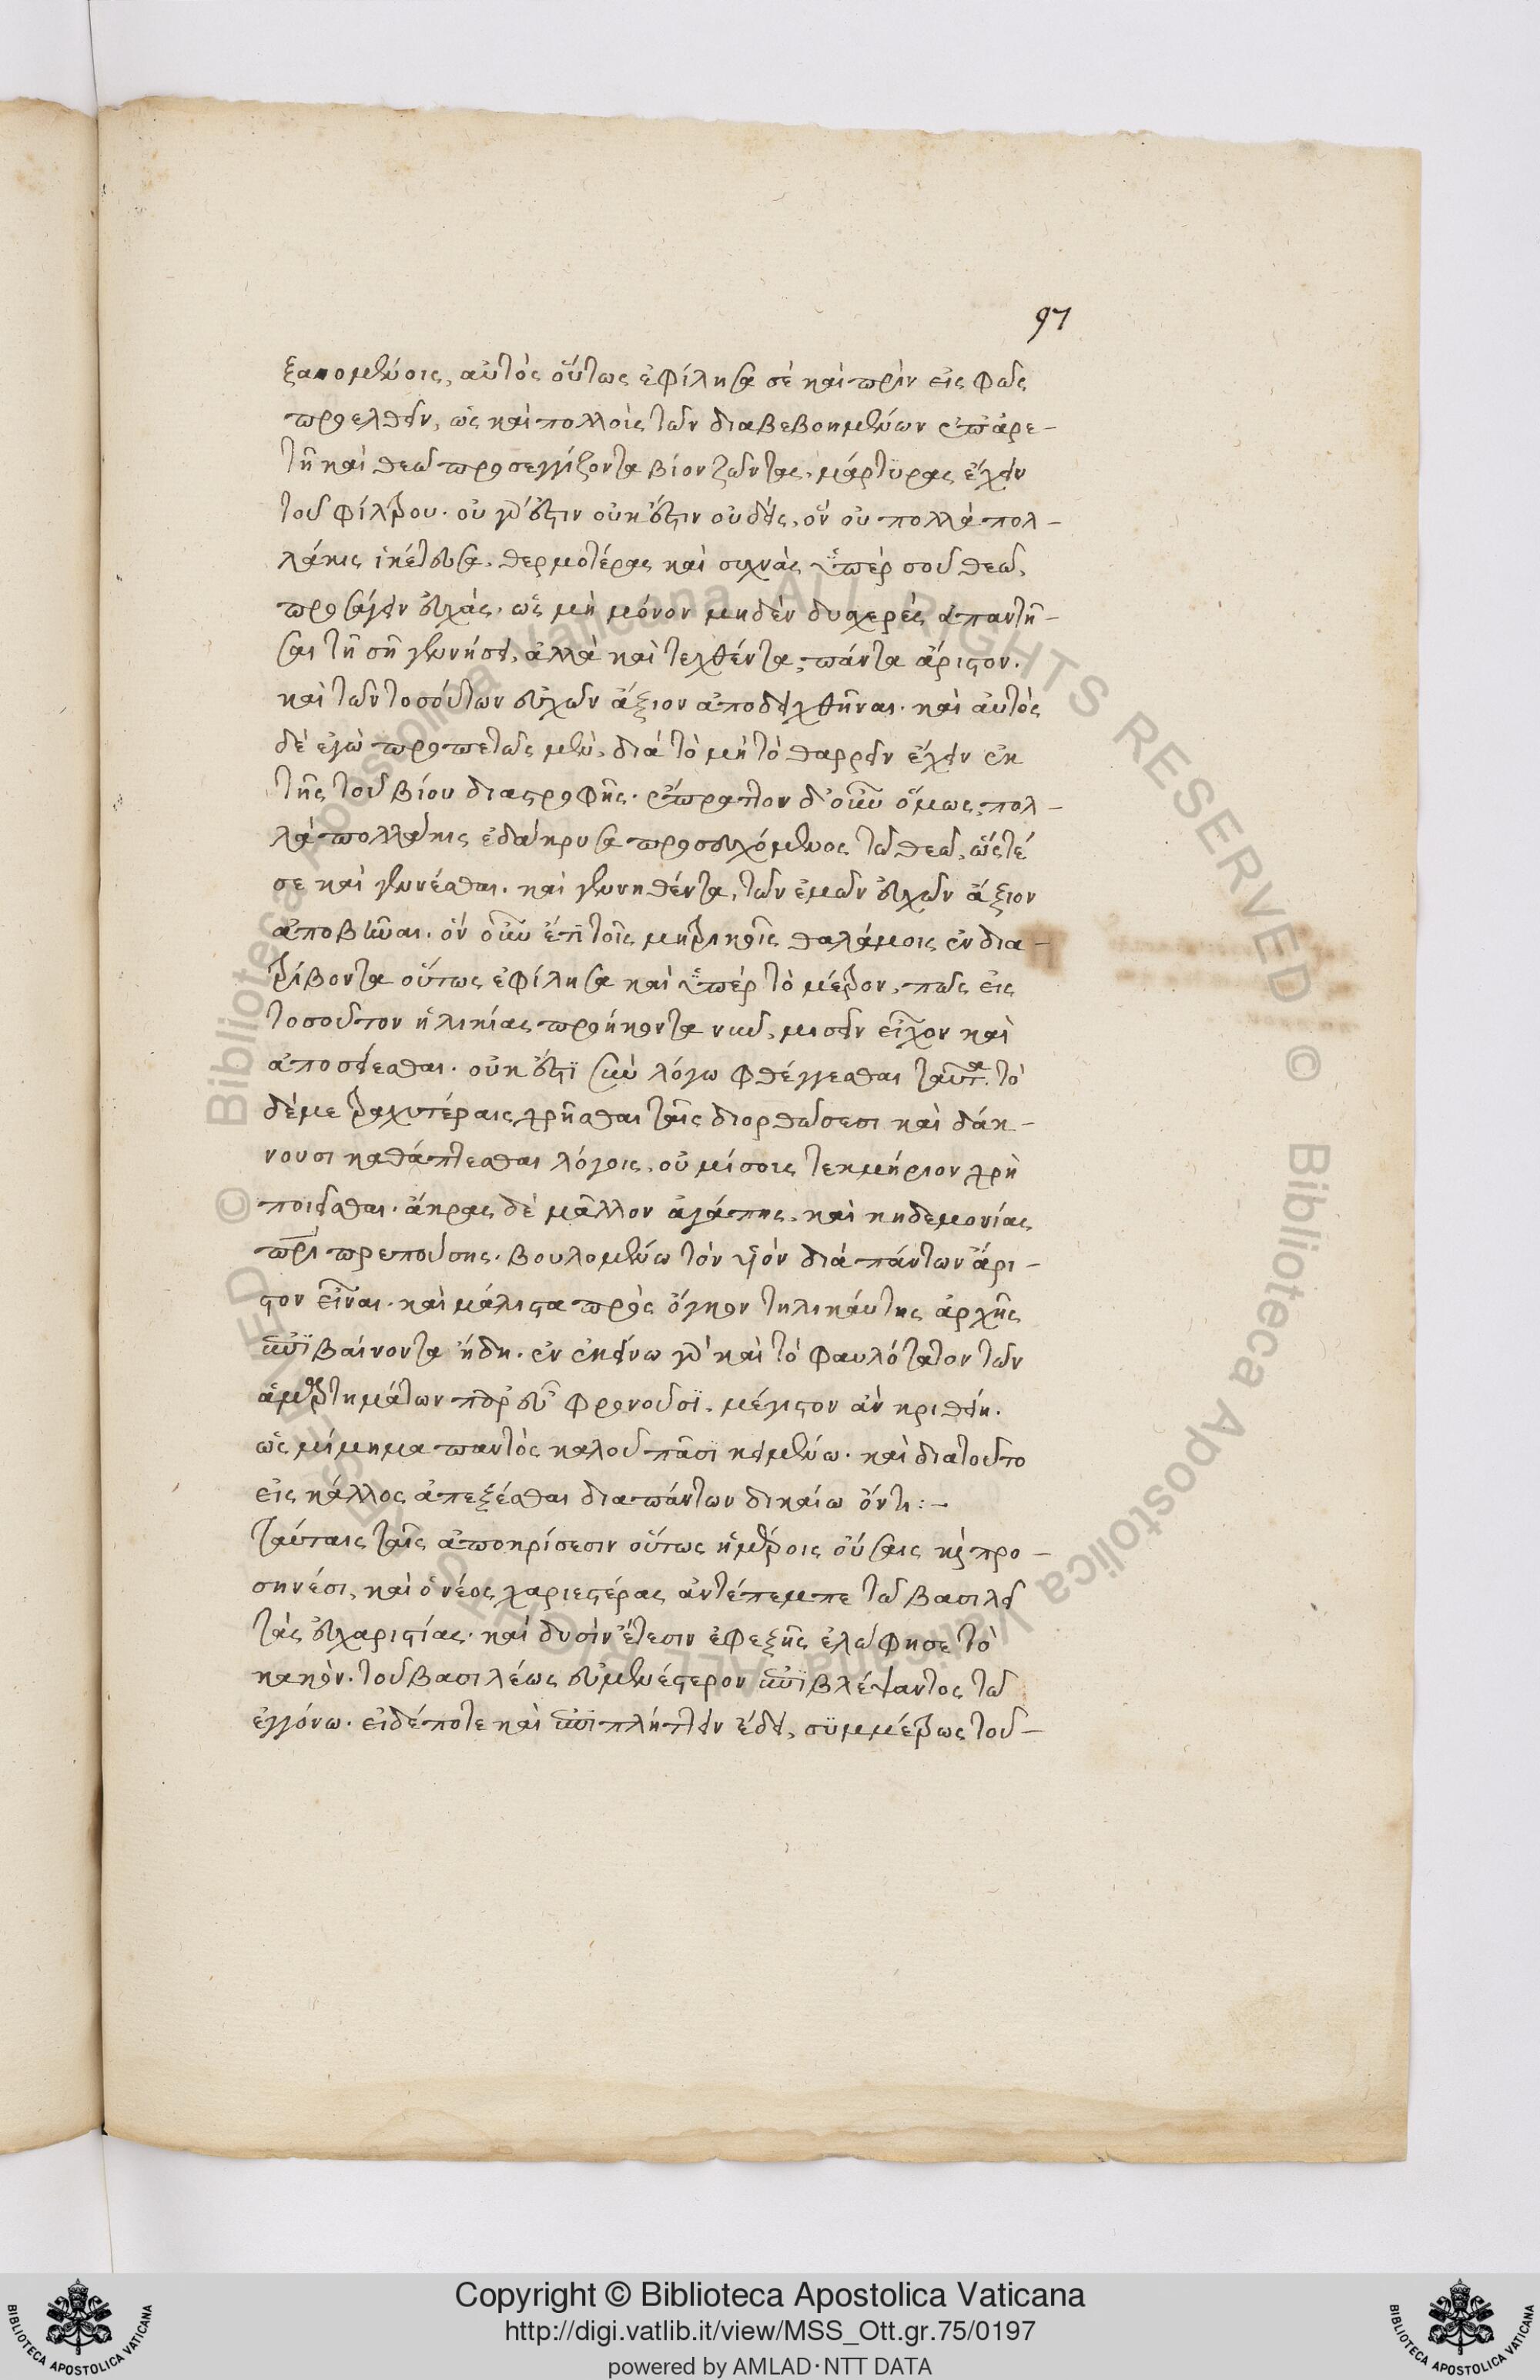 97
ξαπομένοις, αὐτὸς οὕτως ἐφίλησα σὲ καὶ πρὶν εἰς φῶς
προελθεῖν, ὡς καὶ πολλοὶς τῶν διαβεβοημένων ἐπ ἀρε-
τῇ καὶ θεῶ προσεγγίζοντα βίον ζῶντας, μάρτυρας ἔχειν
τοῦ φίλτρου. οὐ γὰρ ἔστιν οὐκ ἔστιν οὐδεὶς, ὃν οὐ πολλὰ πολ-
λάκις ἱκέτευσα, θερμοτέρας καὶ συχνὰς ὑπὲρ σοῦ θεῶ,
προσάγειν εὐχάς, ὡς μὴ μόνον μηδὲν δυσχερὲς ἀπαντῆ-
σαι τῇ σῇ γεννήσει, ἀλλὰ καὶ τεχθέντα, πάντα ἄριστον.
καὶ τῶν τοσούτων εὐχῶν ἄξιον ἀποδειχθῆναι. καὶ αὐτὸς
δὲ ἐγὼ προπετῶς μὲν, διὰ τὸ μὴ τὸ θαρρεῖν ἔχειν ἐκ
τῆς τοῦ βίου διαστροφῆς. ἔπραττον δ' οὖν ὅμως, πολ-
λὰ πολλάκις ἐδάκρυσα προσευχόμενος τῶ θεῶ, ὥς τέ
σε καὶ γενέσθαι. καὶ γεννηθέντα, τῶν ἐμῶν εὐχῶν ἄξιον
ἀποβῆναι. ὃν οὖν ἔτι τοῖς μητρικοῖς θαλάμοις ἐνδια-
τρίβοντα οὕτως ἐφίλησα καὶ ὑπὲρ τὸ μέτρον, πῶς εἰς
τοσοῦτον ἡλικίας προήκοντα νῦν, μισεῖν εἶχον καὶ
ἀποσείεσθαι. οὐκ ἔστι σὺν λόγω φθέγγεσθαι ταῦτα. τὸ
δέ με τραχυτέραις χρῆσθαι ταῖς διορθώσεσι καὶ δάκ-
νουσι καθάπτεσθαι λόγοις, οὐ μίσους τεκμήριον χρὴ
ποιεῖσθαι. ἄκρας δὲ μᾶλλον ἀγάπης, καὶ κηδεμονίας
πατρὶ πρεπούσης. βουλομένω τὸν υἱὸν διὰ πάντων ἄρι-
στον εἶναι. καὶ μάλιστα πρὸς ὄγκον τηλικαύτης ἀρχῆς
ἐπιβαίνοντα ἤδη. ἐν ἐκείνω γὰρ καὶ τὸ φαυλότατον τῶν
ἁμαρτημάτων παρ' εὖ φρονοῦσι, μέγιστον ἂν κριθείη.
ὡς μίμημα παντὸς καλοῦ πᾶσι κειμένω. καὶ διατοῦτο
εἰς κάλλος ἀπεξέσθαι διαπάντων δικαίω ὄντι:-
ταύταις ταῖς ἀποκρίσεσιν οὕτως ἡμέροις οὔσαις καὶ προ-
σηνέσι, καὶ ὁ νέος χαριεστέρας ἀντέπεμπε τῶ βασιλεῖ
τὰς εὐχαριστίας. καὶ δυσὶν ἔτεσιν ἐφεξῆς ἐλώφησε τὸ
κακὸν. τοῦ βασιλέως εὐμενέστερον ἐπιβλέψαντος τῶ
ἐγγόνω. εἰ δέ ποτε καὶ ἐπιπλήττειν ἔδει, συμμέτρως τοῦ-
Copyright © Biblioteca Apostolica Vaticana
http://digi.vatlib.it/view/MSS_Ott.gr.75/0197
powered by AMLAD·NTT DATA
BIBLIOTECA APOSTOLICA VATICANA
BIBLIOTECA APOSTOLICA VATICANA
© Biblioteca Apostolica Vaticana ALL RIGHTS RESERVED © Biblioteca Apostolica Vaticana ALL RIGHTS RESERVED